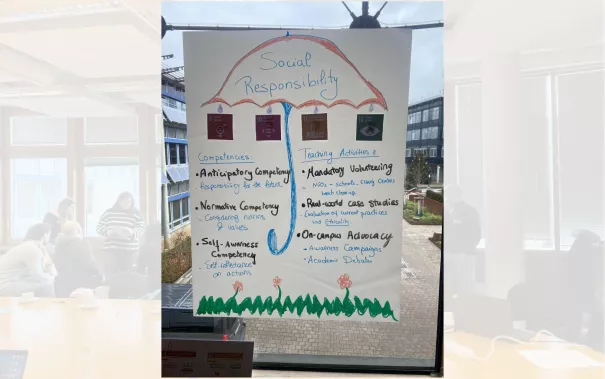 Social
Responsibility
Competencies:
• Anticipatory Competency
Responsibility for the future
• Normative Competency
- Considering norms
& values
• Self-Awareness
Competency
- Self-reflectance
on actions
Teaching Activities:
• Mandatory Volunteering
NGOs - schools, Elderly Centers
• Real-world case Studies
- Evaluation of current practices
and Ethicality
• On-campus Advocacy
- Awareness Campaigns
- Academic Debates